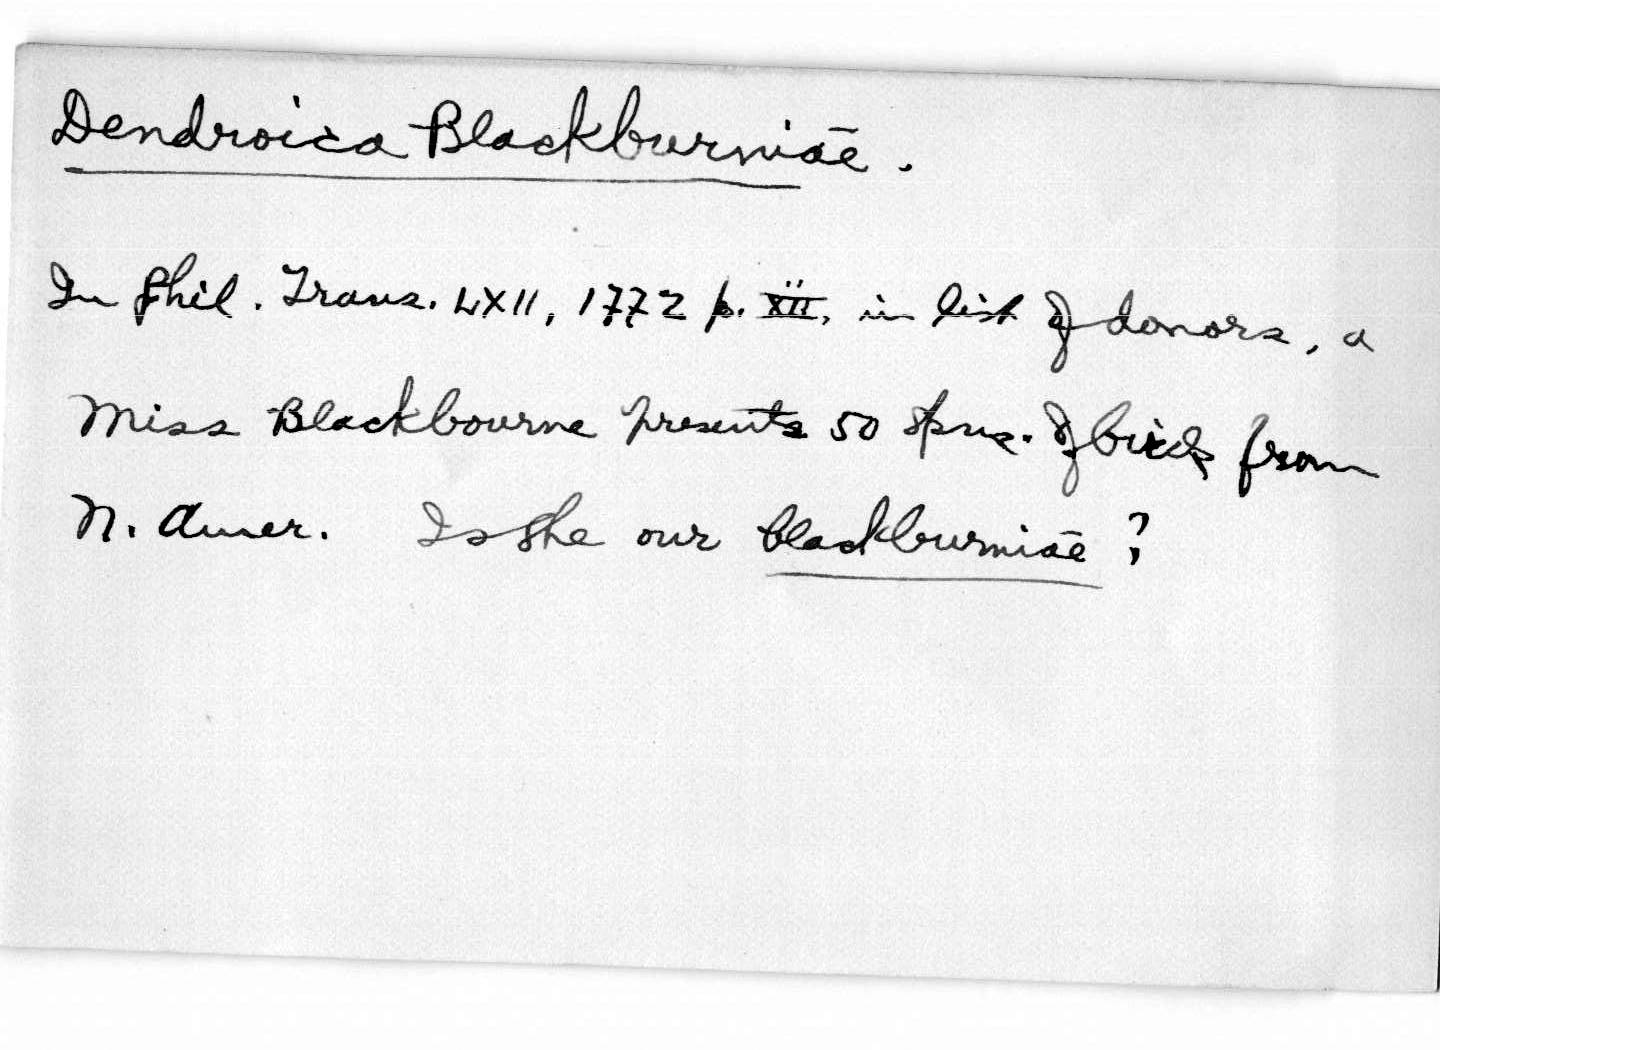 Dendroica Blackburniae.
In Phil. Trans. LXII, 1772 p. XII, in list of donors, a
Miss Blackbourne presents 50 spns. of birds from
N. Amer. Is she our blackburniae?